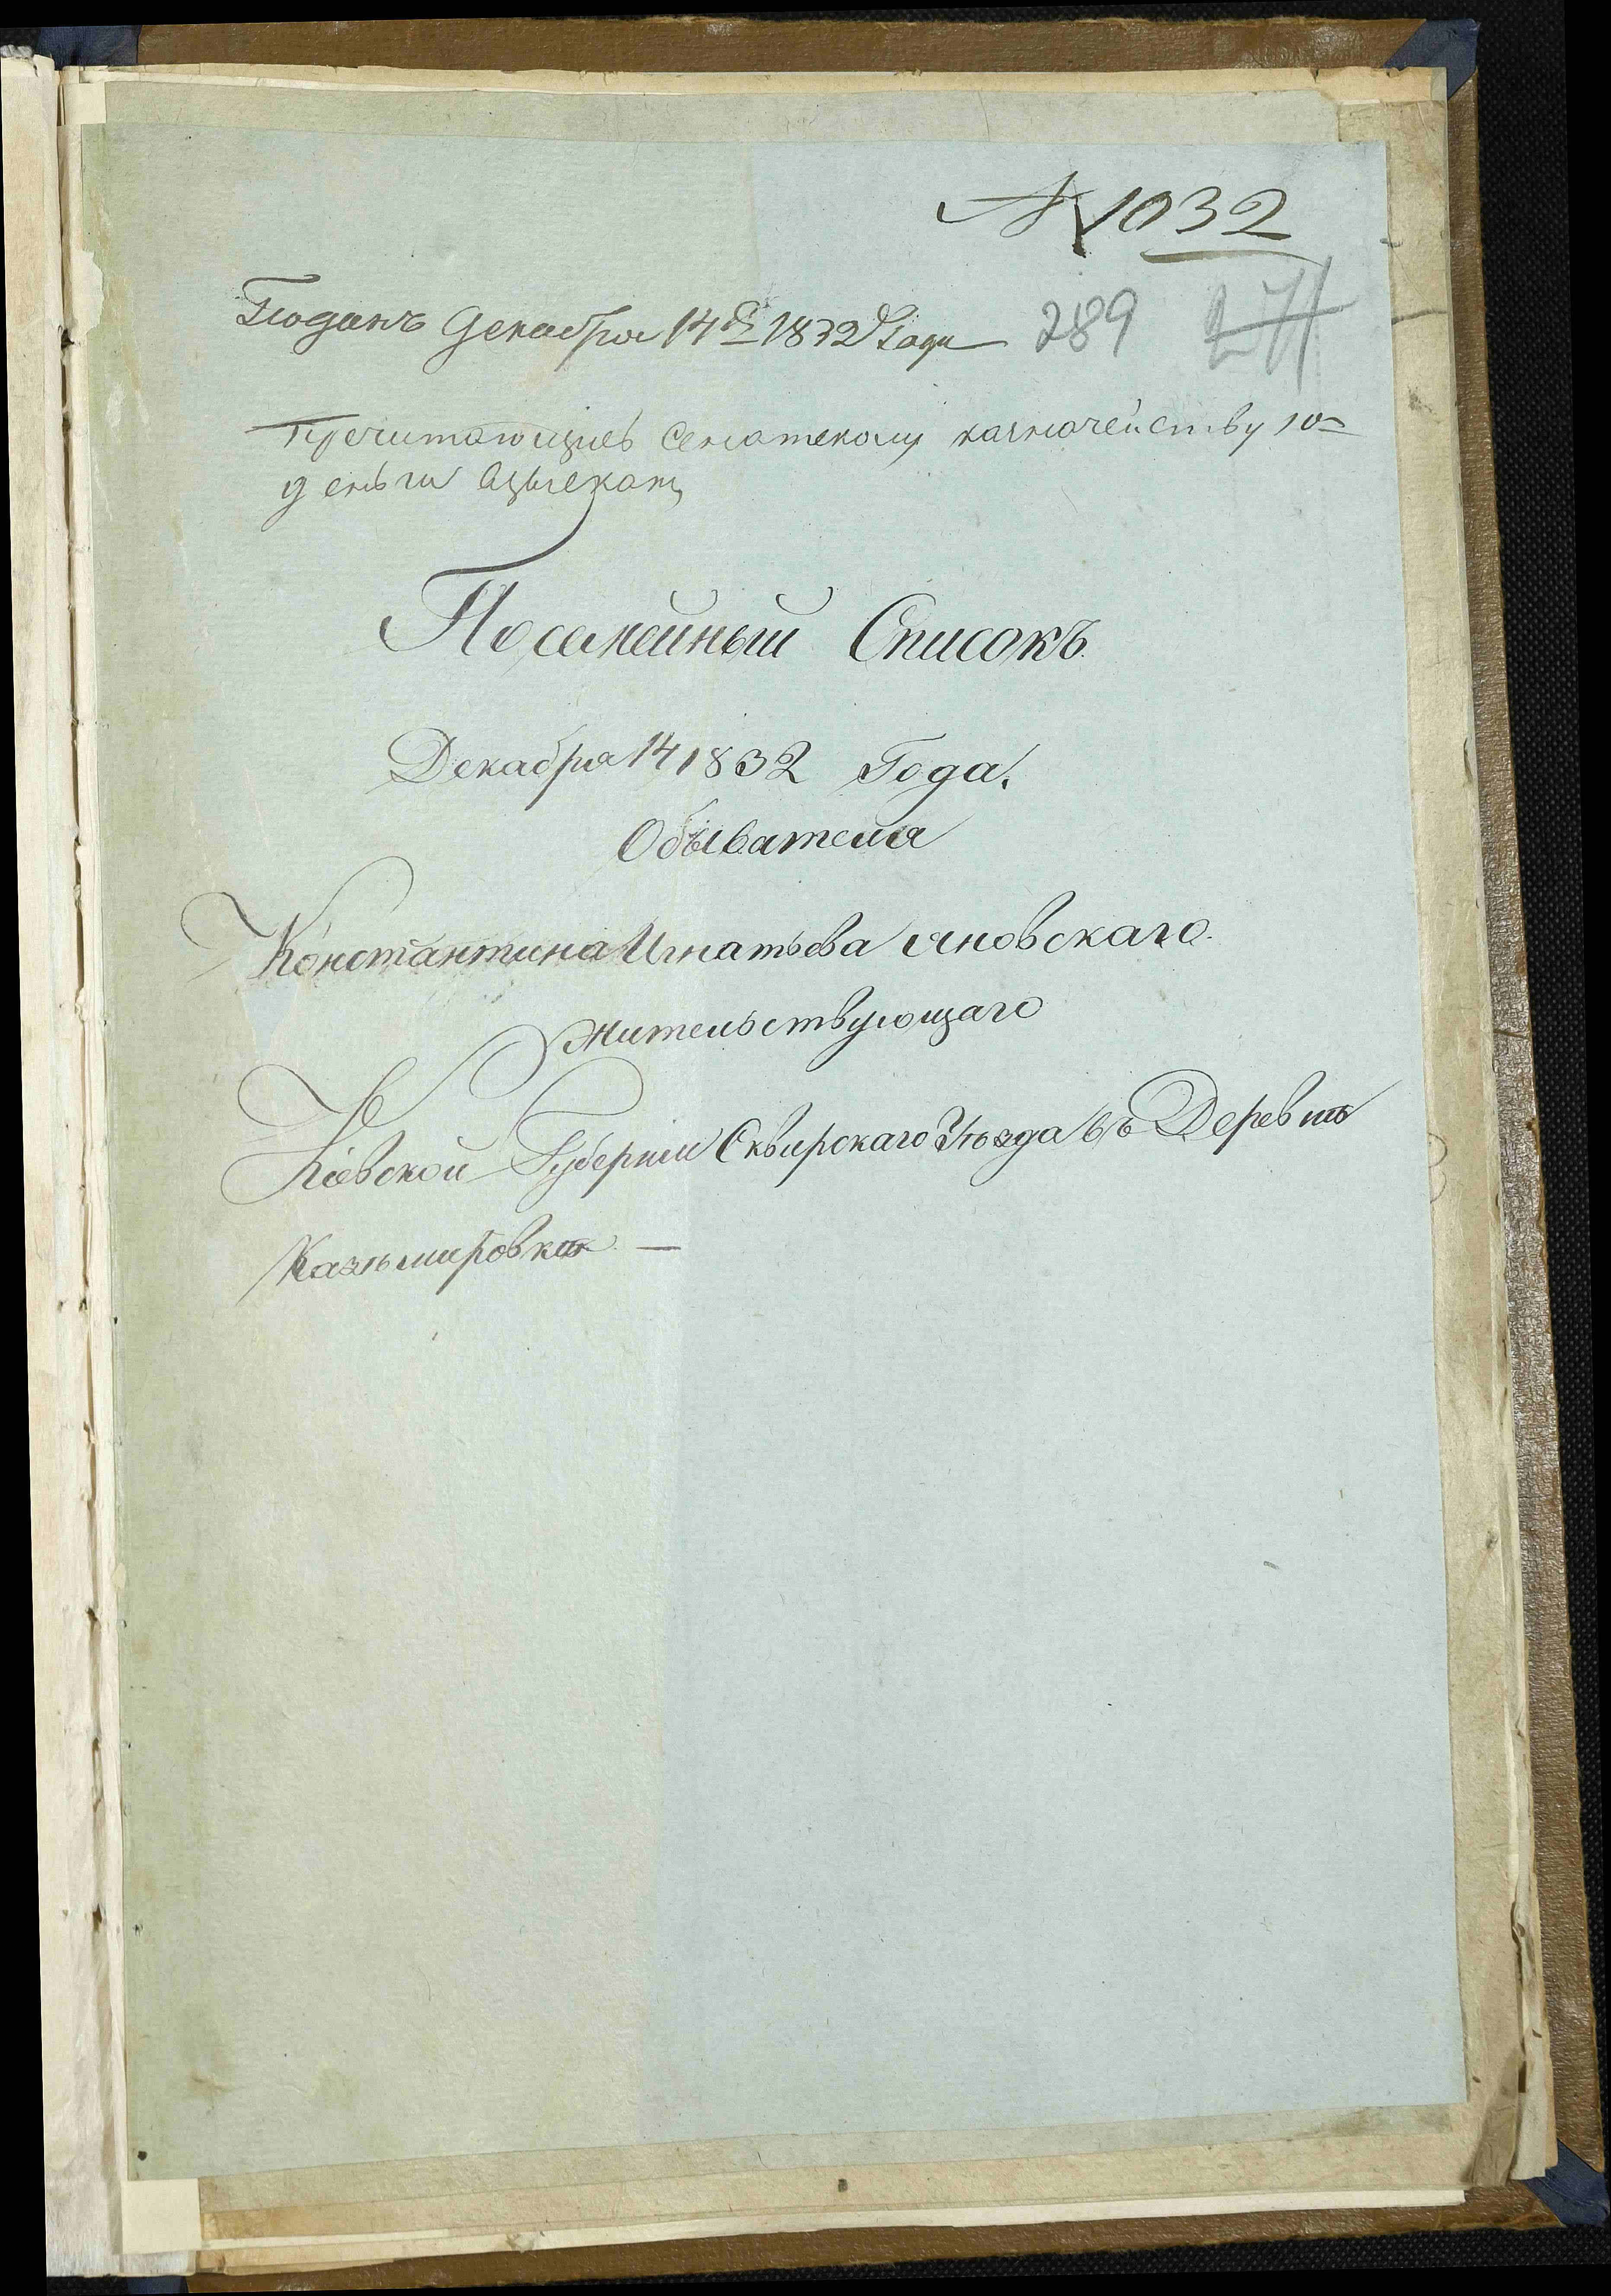 № 1032
Поданъ Декабря 14 д. 1832 Года 289 271
Пречитающиеъ Сенатскому казначейству 10
деньги взысканы
Посемейный Списокъ
Декабря 14 1832 Года.
Обывателя
Константина Игнатьева Яновскаго.
Жительствующаго
Кіевской Губерніи Сквирскаго Уѣзда въ Деревнѣ
Казѣмировкѣ. —